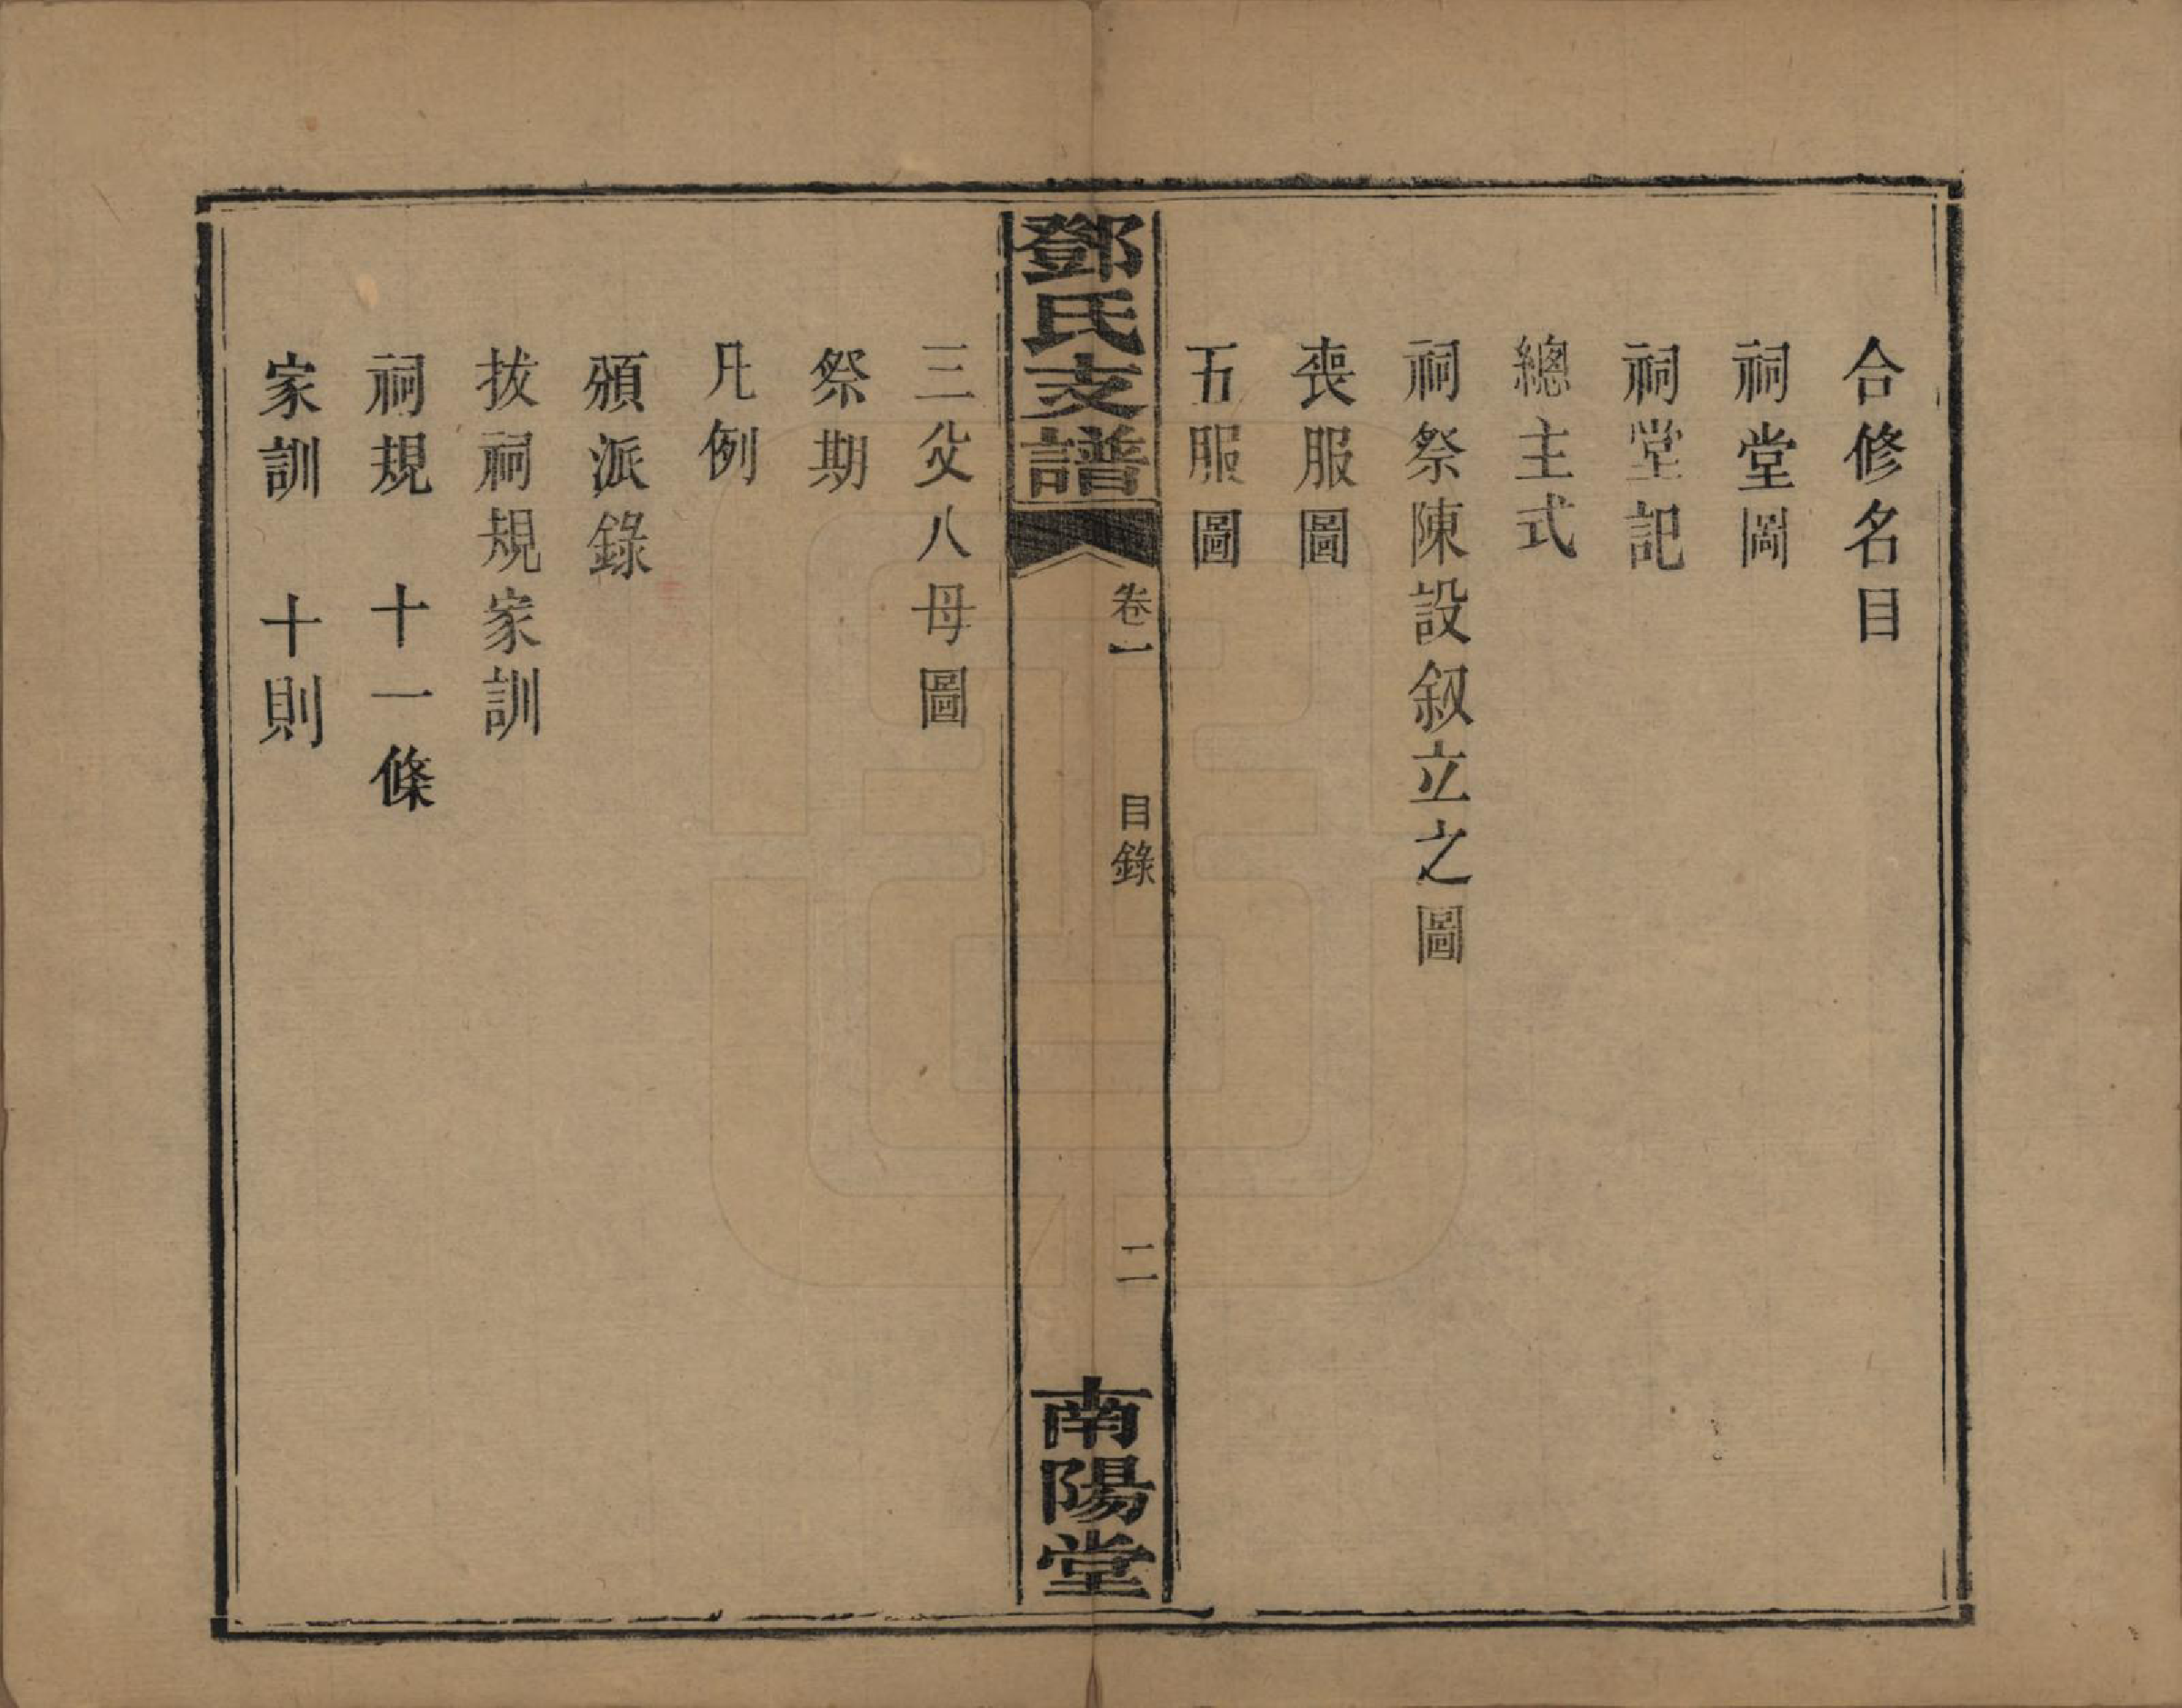 合修名目
祠堂圖
祠堂記
總主式
祠祭陳設叙立之圖
喪服圖
五服圖
鄧氏支譜
卷一
目錄
二
南陽堂
三父八母圖
祭期
凡例
頒派錄
拔祠規家訓
祠規 十一條
家訓 十則